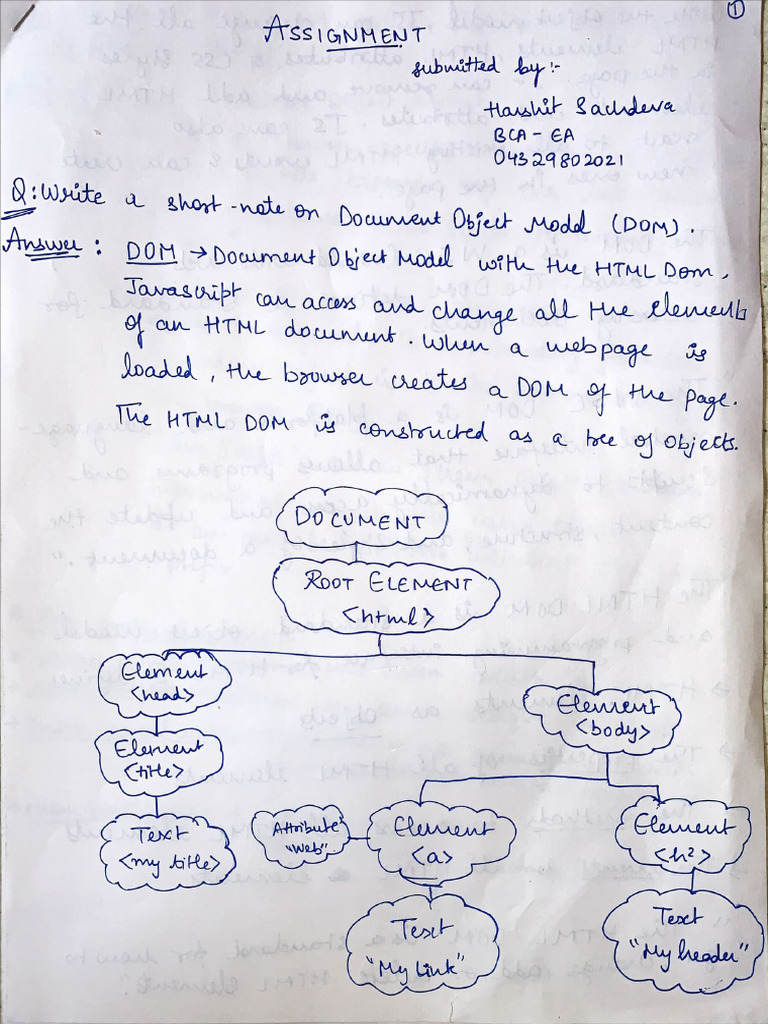 1
ASSIGNMENT
submitted by :-
Harshit Sachdeva
BCA - EA
04329802021
Q: Write a short-note on Document Object Model (DOM).
Answer : DOM → Document Object Model with the HTML Dom,
Javascript can access and change all the elements
of an HTML document. When a webpage is
loaded, the browser creates a DOM of the page.
The HTML DOM is constructed as a tree of objects.
DOCUMENT
ROOT ELEMENT
<html>
Element
<head>
Element
<body>
Element
<title>
Text
<my title>
Attribute
"Web"
Element
<a>
Element
<h2>
Text
"My Link"
Text
"My header"